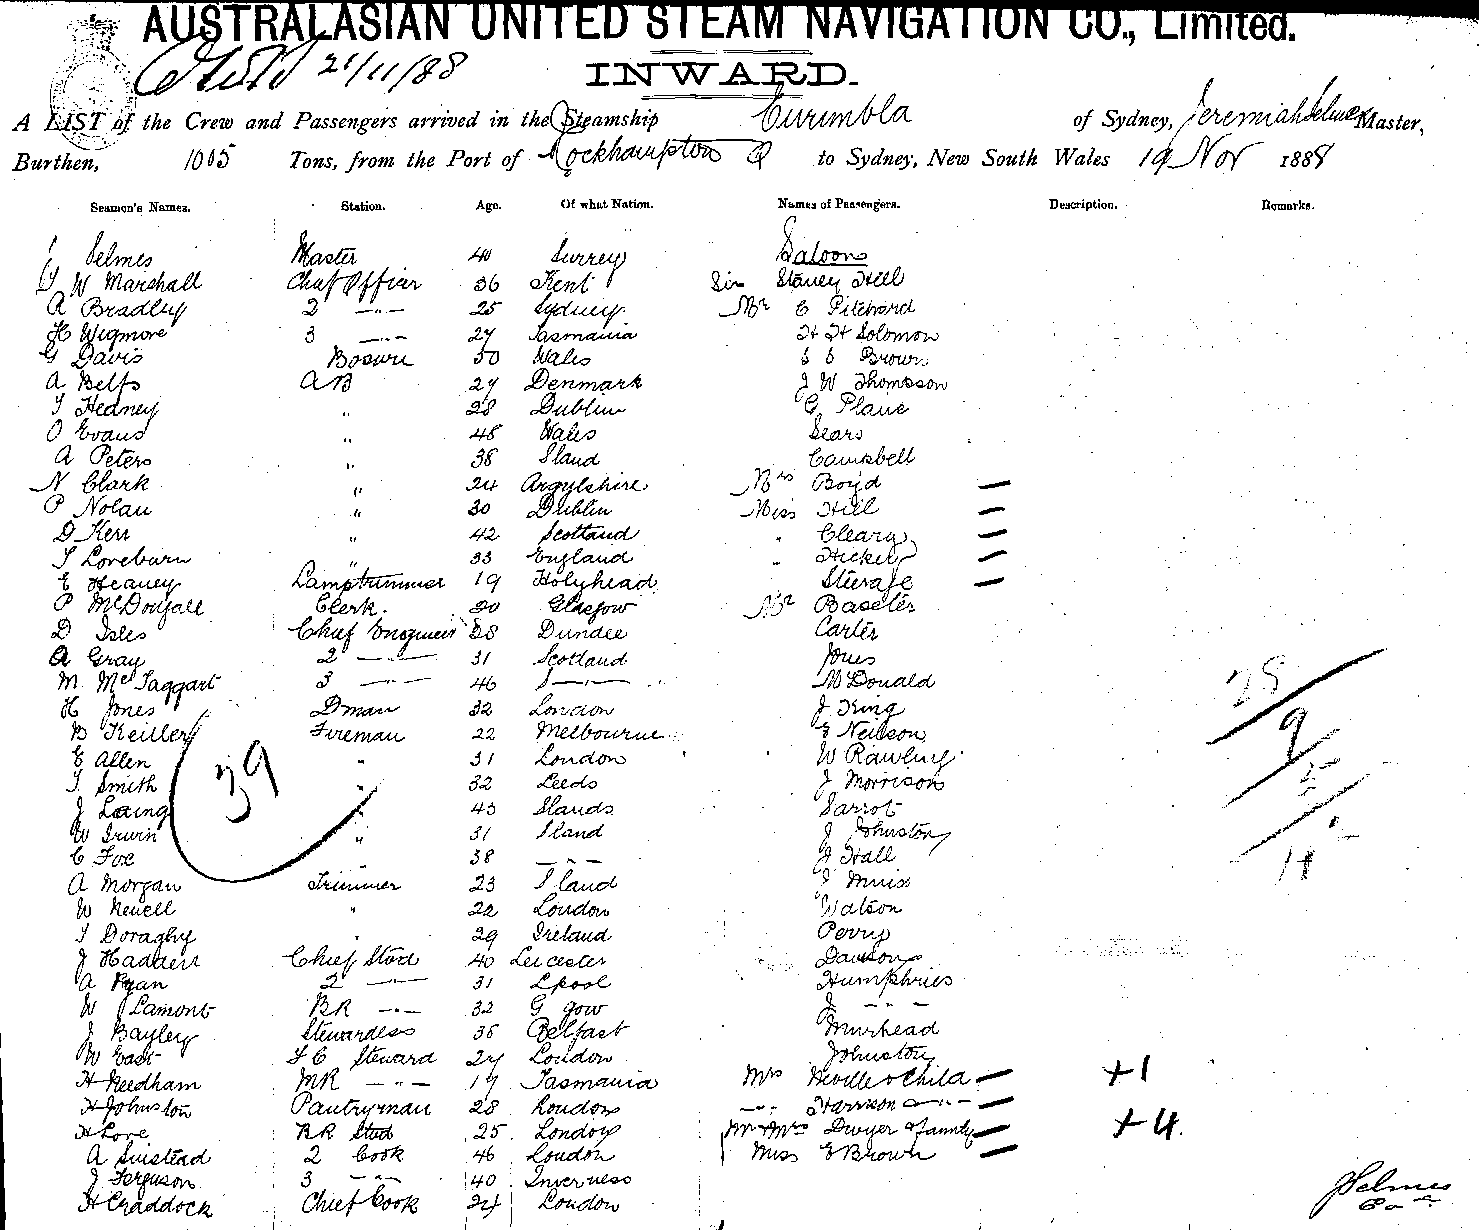 AUSTRALASIAN UNITED STEAM NAVIGATION CO., Limited.
21/11/88
INWARD.
A LIST of the Crew and Passengers arrived in the Steamship Eurimbla of Sydney, Jeremiah Selmes Master,
Burthen, 1005 Tons, from the Port of Rockhampton Q to Sydney, New South Wales 19 Nov 1888
Seamen's Names. Station. Age. Of what Nation. Names of Passengers. Description. Remarks.
J Selmes Master 40 Surrey Saloons
W Marshall Chief Officer 36 Kent Sir Stanley Hill
A Bradley 2 —"— 25 Sydney Mr C Pitchard
H Wigmore 3 —"— 27 Tasmania H H Solomon
G Davis Boswn 50 Wales S S Brown
A Belfs AB 27 Denmark J W Thompson
T Heaney " 28 Dublin G Plane
O Evans " 48 Wales Sears
A Peters " 38 Sland Campbell
N Clark " 24 Argylshire Mrs Boyd —
P Nolan " 30 Dublin Miss Hill —
D Kerr " 42 Scotland " Cleary —
T Loveburn " 33 England " Hickey —
E Heaney Lamptrimmer 19 Holyhead Steerage —
P McDougall Clerk. 20 Glasgow Mr Baseler
D Isles Chief Engineer 38 Dundee Carter
A Gray 2 —"— 31 Scotland Jones
M McTaggart 3 —"— 46 S—"— McDonald
H Jones Dman 32 London J King
B Keiller Fireman 22 Melbourne E Neilson
E Allen " 31 London W Rawling
T Smith " 32 Leeds J Morrison
J Laing " 43 Slands Sarrot
W Irwin " 31 Sland J Johnston
C Foe " 38 — " — J Hall
A Morgan Trimmer 23 Sland J Muis
W Newell " 22 London Watson
T Doraghy " 29 Ireland Perry
J Hadden Chief Stwd 40 Leicester Dawson
A Ryan 2 —"— 31 Lpool Humphries
W Lamont BR —"— 32 G gow J — " —
J Bayley Stewardess 38 Belfast Muirhead
W East F C Steward 27 London Johnston
H Needham MR —"— 17 Tasmania Mrs Neville & Child — +1
H Johnston Pantryman 28 London —"— Harrison —"— —
H Love BR Stwd 25 London Mr Mrs Dwyer & family — +4.
A Suistead 2 Cook 46 London Miss E Brown —
J Ferguson 3 —"— 40 Inverness
H Craddock Chief Cook 24 London
39
28
9
5
J Selmes